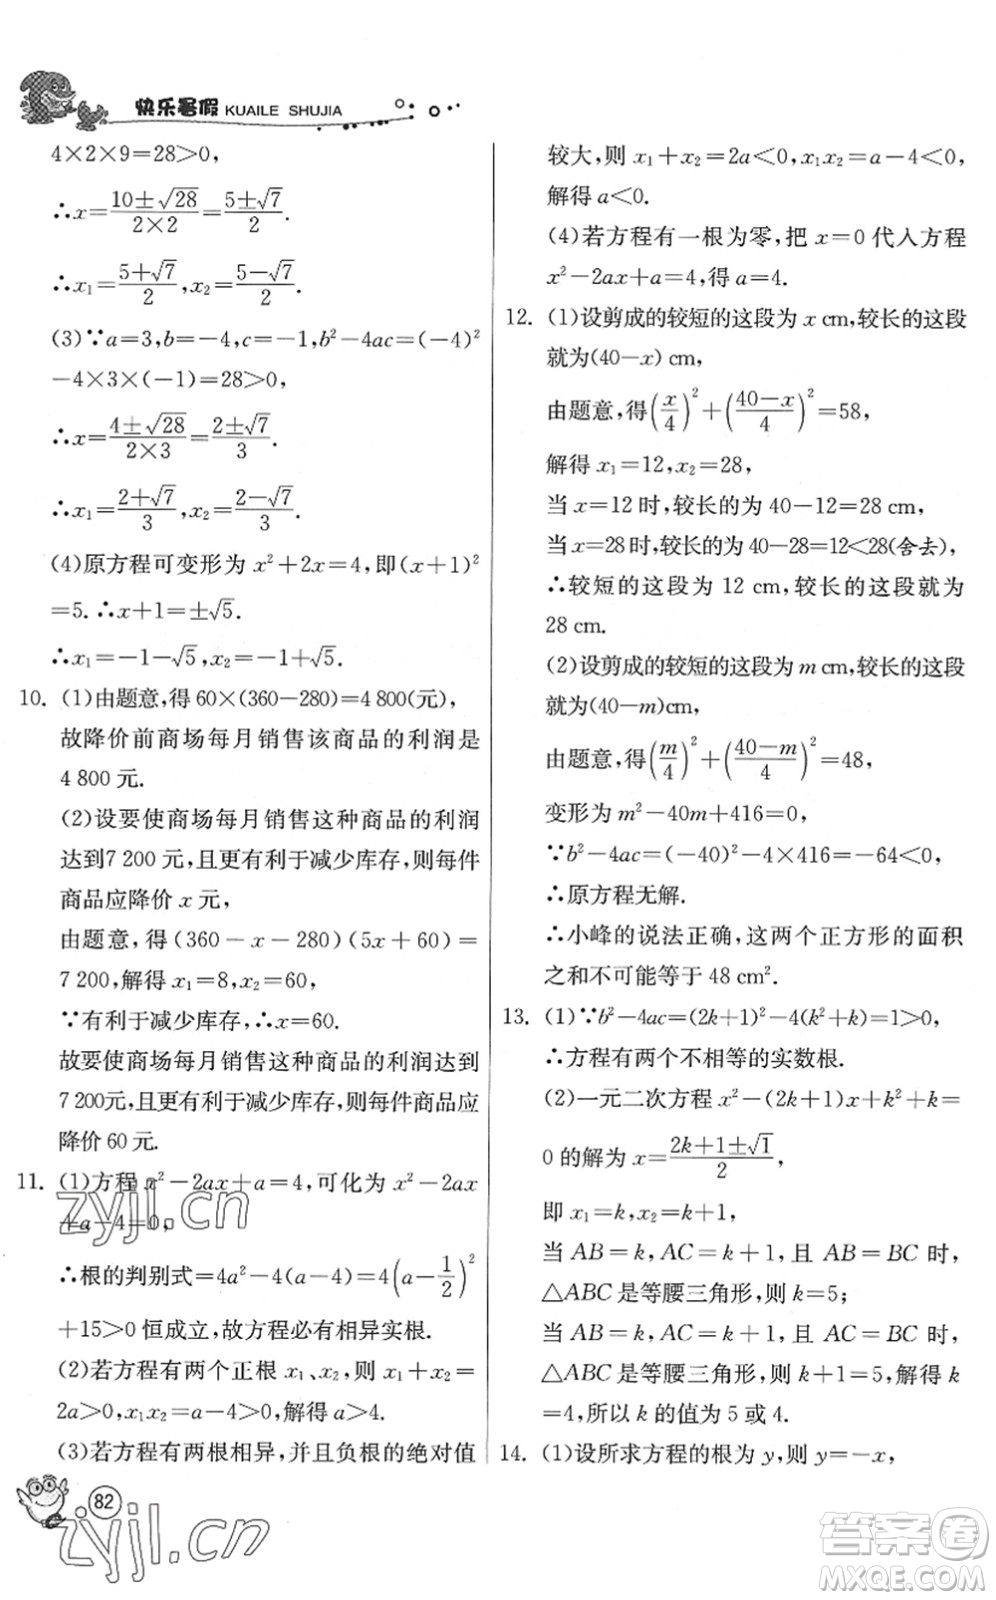 快乐暑假 KUAILE SHUJIA
4×2×9=28>0,
∴x=\frac{10±√28}{2×2}=\frac{5±√7}{2}.
∴x₁=\frac{5+√7}{2},x₂=\frac{5-√7}{2}.
(3)∵a=3,b=-4,c=-1,b²-4ac=(-4)²
-4×3×(-1)=28>0,
∴x=\frac{4±√28}{2×3}=\frac{2±√7}{3}.
∴x₁=\frac{2+√7}{3},x₂=\frac{2-√7}{3}.
(4)原方程可变形为 x²+2x=4,即(x+1)²
=5.∴x+1=±√5.
∴x₁=-1-√5,x₂=-1+√5.
10. (1)由题意,得 60×(360-280)=4 800(元),
故降价前商场每月销售该商品的利润是
4 800 元.
(2)设要使商场每月销售这种商品的利润
达到7 200 元,且更有利于减少库存,则每件
商品应降价 x 元,
由题意,得(360-x-280)(5x+60)=
7 200,解得 x₁=8,x₂=60,
∵有利于减少库存,∴x=60.
故要使商场每月销售这种商品的利润达到
7 200元,且更有利于减少库存,则每件商品应
降价 60 元.
11. (1)方程 x²-2ax+a=4,可化为 x²-2ax
+a-4=0,
∴根的判别式=4a²-4(a-4)=4(a-\frac{1}{2})²
+15>0 恒成立,故方程必有相异实根.
(2)若方程有两个正根 x₁、x₂,则 x₁+x₂=
2a>0,x₁x₂=a-4>0,解得 a>4.
(3)若方程有两根相异,并且负根的绝对值
82
zyjl.cn
zyjl.cn
较大,则 x₁+x₂=2a<0,x₁x₂=a-4<0,
解得 a<0.
(4)若方程有一根为零,把 x=0 代入方程
x²-2ax+a=4,得 a=4.
12. (1)设剪成的较短的这段为 x cm,较长的这段
就为(40-x) cm,
由题意,得(\frac{x}{4})²+(\frac{40-x}{4})²=58,
解得 x₁=12,x₂=28,
当 x=12 时,较长的为 40-12=28 cm,
当 x=28 时,较长的为 40-28=12<28(舍去),
∴较短的这段为 12 cm,较长的这段就为
28 cm.
(2)设剪成的较短的这段为 m cm,较长的这
段就为(40-m)cm,
由题意,得(\frac{m}{4})²+(\frac{40-m}{4})²=48,
变形为 m²-40m+416=0,
∵b²-4ac=(-40)²-4×416=-64<0,
∴原方程无解.
∴小峰的说法正确,这两个正方形的面积
之和不可能等于 48 cm².
13. (1)∵b²-4ac=(2k+1)²-4(k²+k)=1>0,
∴方程有两个不相等的实数根.
(2)一元二次方程 x²-(2k+1)x+k²+k=
0 的解为 x=\frac{2k+1±√1}{2},
即 x₁=k,x₂=k+1,
当 AB=k,AC=k+1,且 AB=BC 时,
△ABC 是等腰三角形,则 k=5;
当 AB=k,AC=k+1,且 AC=BC 时,
△ABC 是等腰三角形,则 k+1=5,解得 k
=4,所以 k 的值为 5 或 4.
14. (1)设所求方程的根为 y,则 y=-x,
答案圈
MXQE.COM